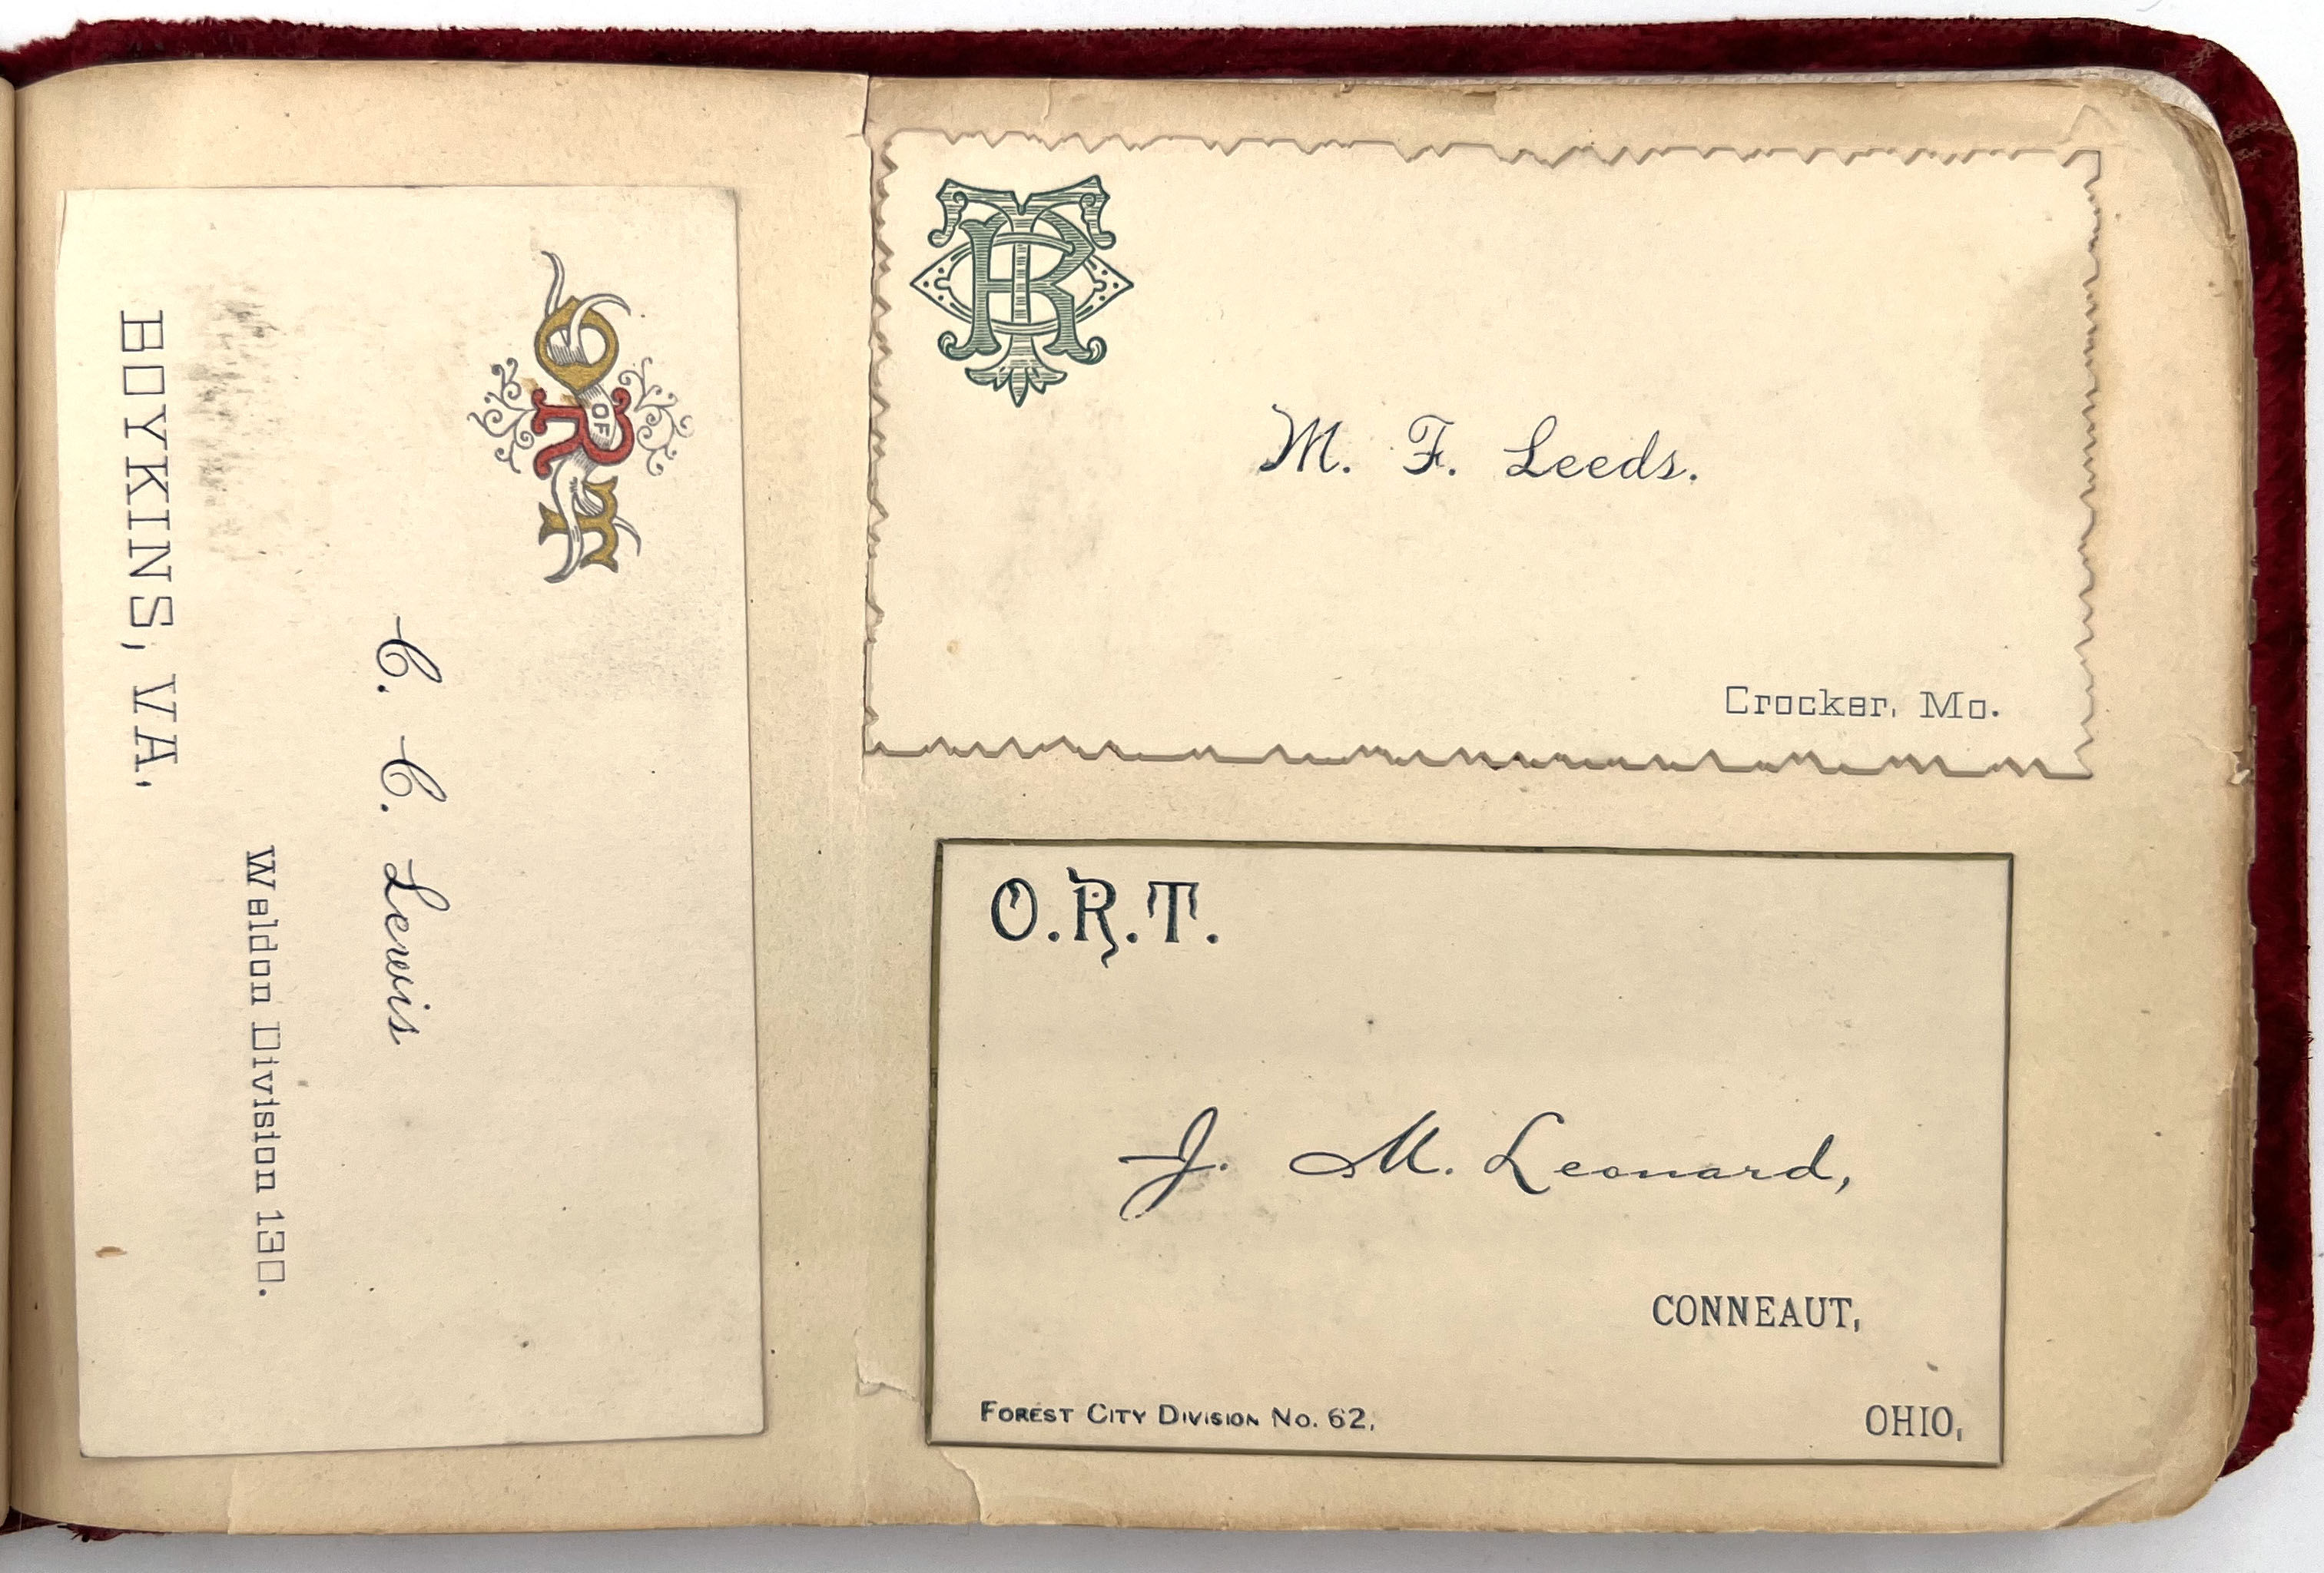 O OF R T
C. C. Lewis
Weldon Division 130.
BOYKINS, VA.
ORT
M. F. Leeds.
Crocker, Mo.
O.R.T.
J. M. Leonard,
CONNEAUT,
FOREST CITY DIVISION No. 62, OHIO,